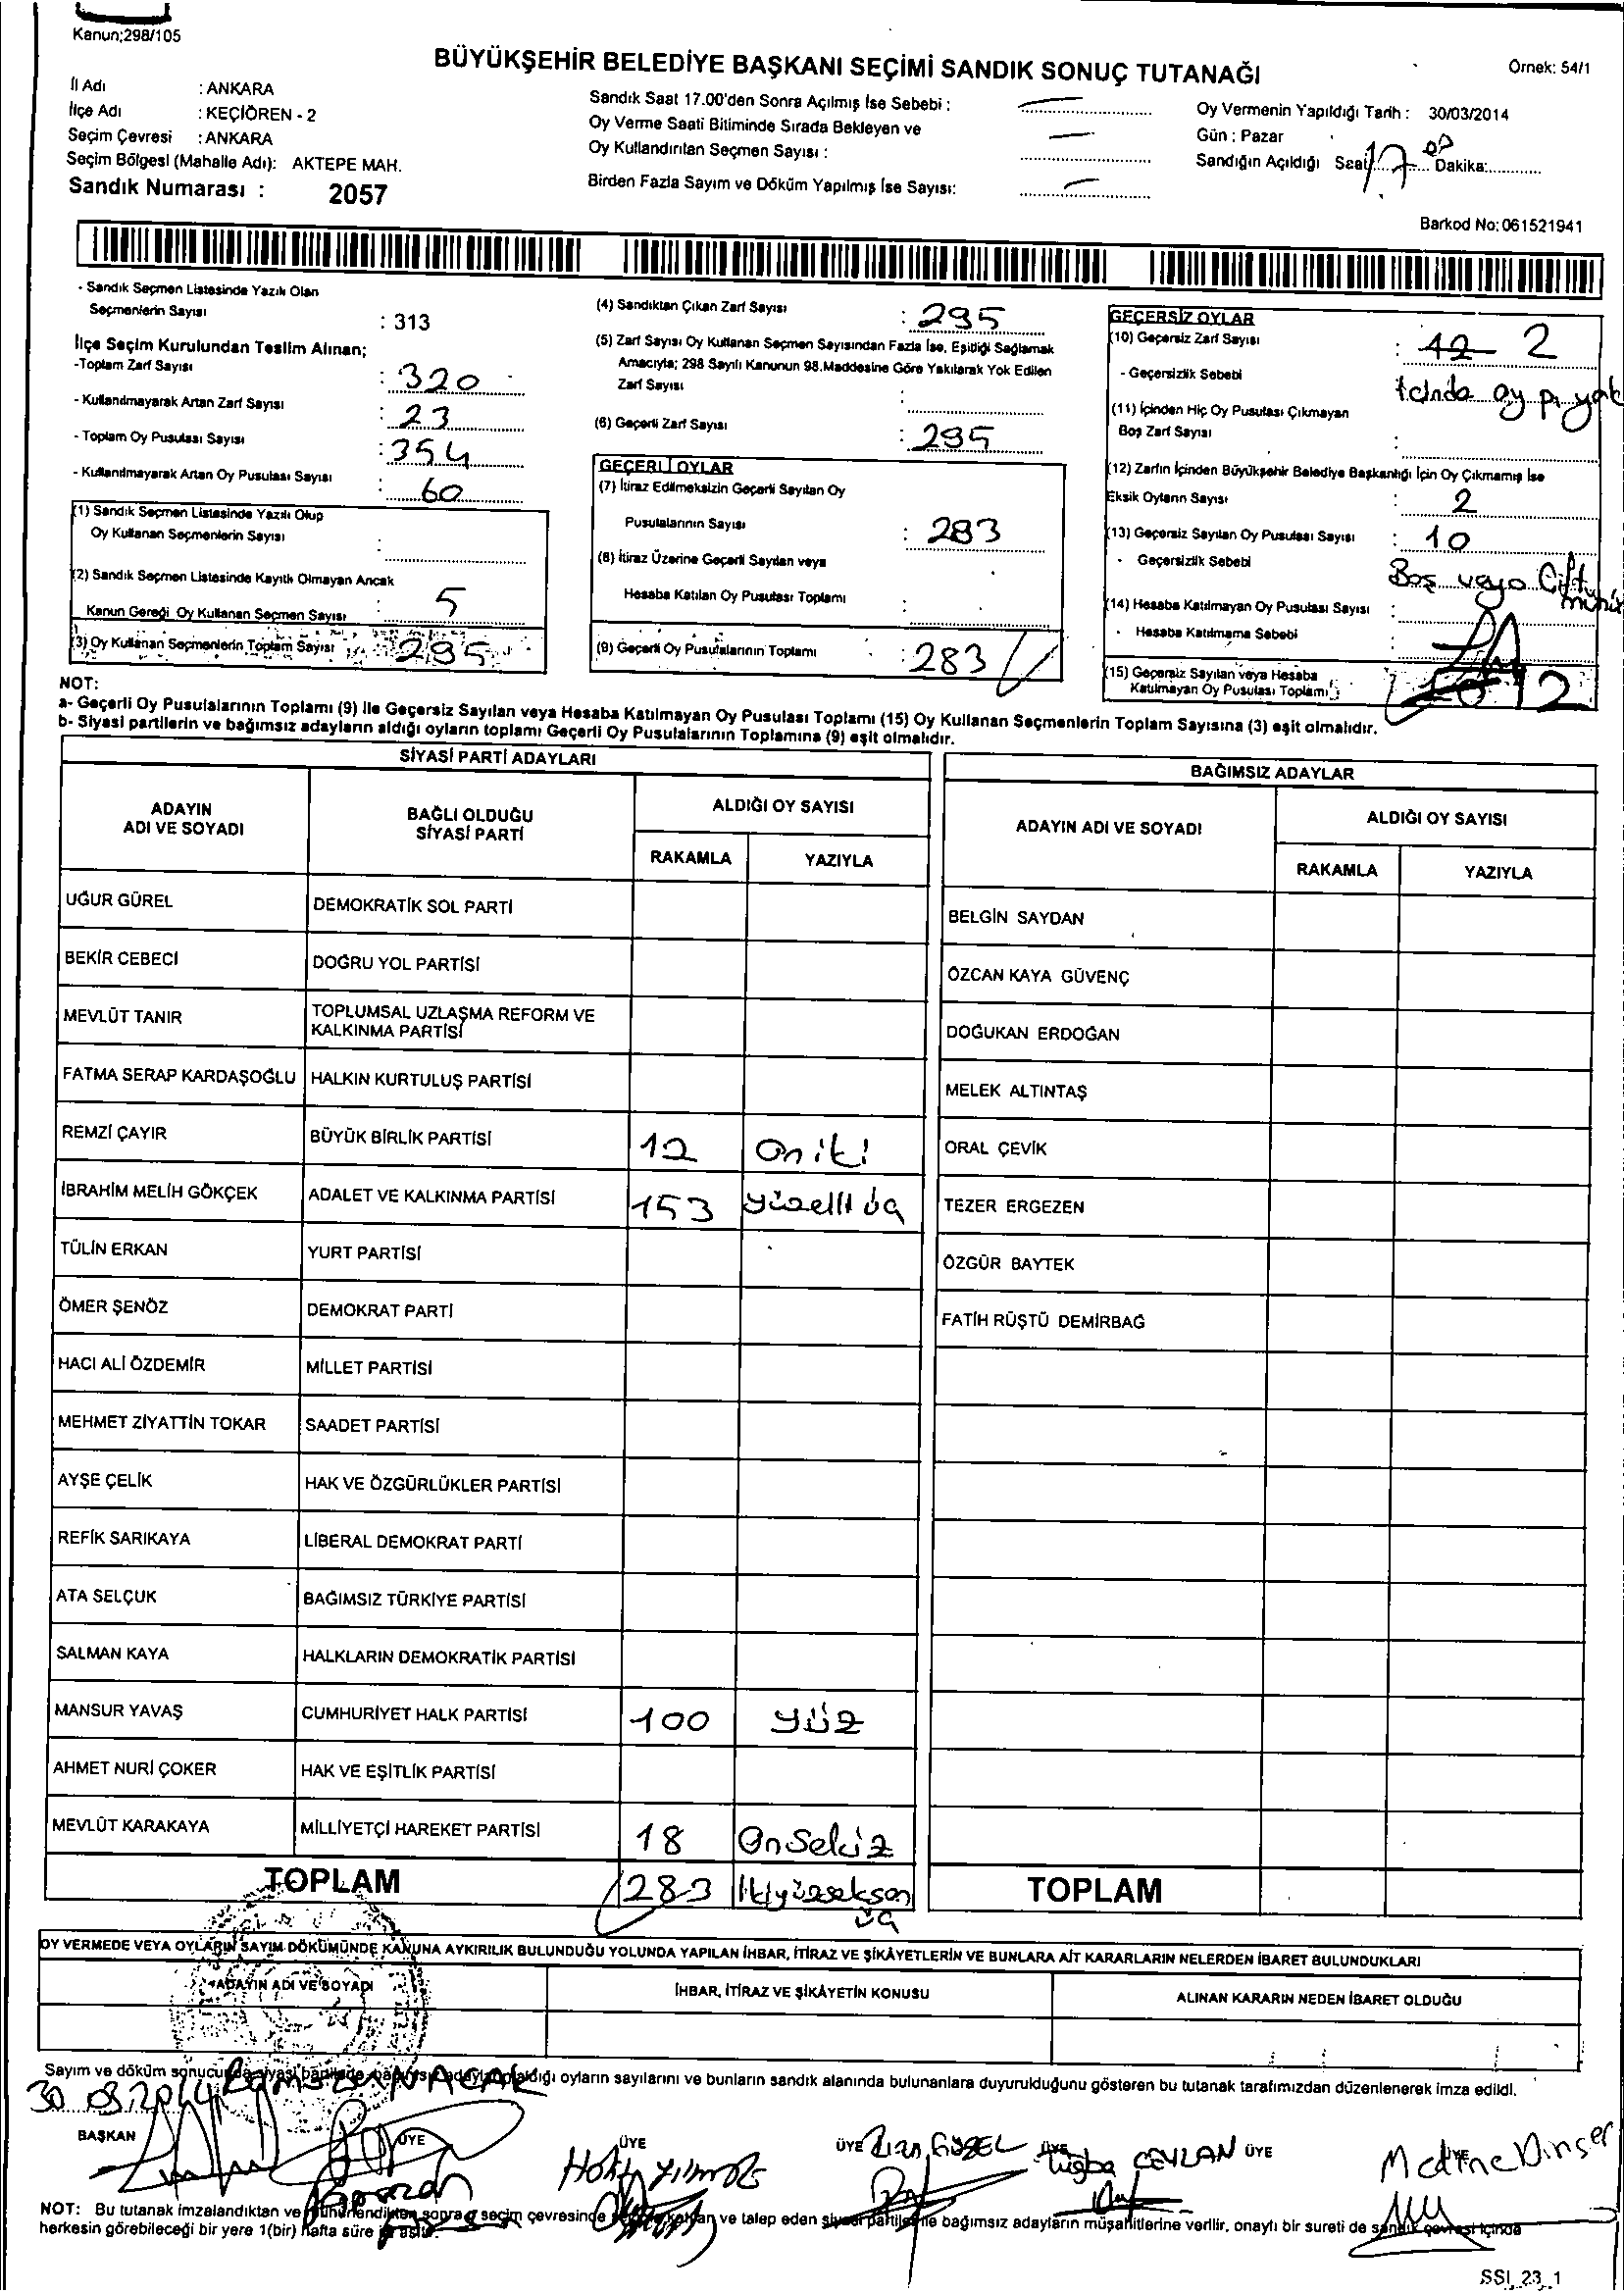 Kanun;298/105
BÜYÜKŞEHİR BELEDİYE BAŞKANI SEÇİMİ SANDIK SONUÇ TUTANAĞI
Örnek: 54/1
İl Adı : ANKARA
İlçe Adı : KEÇİÖREN - 2
Seçim Çevresi : ANKARA
Seçim Bölgesi (Mahalle Adı): AKTEPE MAH.
Sandık Numarası : 2057
Sandık Saat 17.00'den Sonra Açılmış İse Sebebi :
Oy Verme Saati Bitiminde Sırada Bekleyen ve
Oy Kullandırılan Seçmen Sayısı :
Birden Fazla Sayım ve Döküm Yapılmış İse Sayısı:
Oy Vermenin Yapıldığı Tarih : 30/03/2014
Gün : Pazar
Sandığın Açıldığı Saat 17 00 Dakika:
Barkod No: 061521941
- Sandık Seçmen Listesinde Yazılı Olan
Seçmenlerin Sayısı : 313
İlçe Seçim Kurulundan Teslim Alınan;
-Toplam Zarf Sayısı : 320
- Kullanılmayarak Artan Zarf Sayısı : 23
- Toplam Oy Pusulası Sayısı : 354
- Kullanılmayarak Artan Oy Pusulası Sayısı : 60
(1) Sandık Seçmen Listesinde Yazılı Olup
Oy Kullanan Seçmenlerin Sayısı :
(2) Sandık Seçmen Listesinde Kayıtlı Olmayan Ancak
Kanun Gereği Oy Kullanan Seçmen Sayısı : 5
(3) Oy Kullanan Seçmenlerin Toplam Sayısı : 295
(4) Sandıktan Çıkan Zarf Sayısı : 295
(5) Zarf Sayısı Oy Kullanan Seçmen Sayısından Fazla İse, Eşitliği Sağlamak
Amacıyla; 298 Sayılı Kanunun 98.Maddesine Göre Yakılarak Yok Edilen
Zarf Sayısı :
(6) Geçerli Zarf Sayısı : 295
GEÇERLİ OYLAR
(7) İtiraz Edilmeksizin Geçerli Sayılan Oy
Pusulalarının Sayısı : 283
(8) İtiraz Üzerine Geçerli Sayılan veya
Hesaba Katılan Oy Pusulası Toplamı :
(9) Geçerli Oy Pusulalarının Toplamı : 283
GEÇERSİZ OYLAR
(10) Geçersiz Zarf Sayısı : 12 2
- Geçersizlik Sebebi : İçinde oy p. yok
(11) İçinden Hiç Oy Pusulası Çıkmayan
Boş Zarf Sayısı :
(12) Zarfın İçinden Büyükşehir Belediye Başkanlığı İçin Oy Çıkmamış İse
Eksik Oyların Sayısı : 2
(13) Geçersiz Sayılan Oy Pusulası Sayısı : 10
- Geçersizlik Sebebi Boş veya Çift mühür
(14) Hesaba Katılmayan Oy Pusulası Sayısı :
- Hesaba Katılmama Sebebi :
(15) Geçersiz Sayılan veya Hesaba
Katılmayan Oy Pusulası Toplamı : 12
NOT:
a- Geçerli Oy Pusulalarının Toplamı (9) ile Geçersiz Sayılan veya Hesaba Katılmayan Oy Pusulası Toplamı (15) Oy Kullanan Seçmenlerin Toplam Sayısına (3) eşit olmalıdır.
b- Siyasi partilerin ve bağımsız adayların aldığı oyların toplamı Geçerli Oy Pusulalarının Toplamına (9) eşit olmalıdır.
SİYASİ PARTİ ADAYLARI
ADAYIN ADI VE SOYADI
BAĞLI OLDUĞU SİYASİ PARTİ
ALDIĞI OY SAYISI
RAKAMLA YAZIYLA
UĞUR GÜREL DEMOKRATİK SOL PARTİ
BEKİR CEBECİ DOĞRU YOL PARTİSİ
MEVLÜT TANIR TOPLUMSAL UZLAŞMA REFORM VE KALKINMA PARTİSİ
FATMA SERAP KARDAŞOĞLU HALKIN KURTULUŞ PARTİSİ
REMZİ ÇAYIR BÜYÜK BİRLİK PARTİSİ 12 oniki
İBRAHİM MELİH GÖKÇEK ADALET VE KALKINMA PARTİSİ 153 yüzelli üç
TÜLİN ERKAN YURT PARTİSİ
ÖMER ŞENÖZ DEMOKRAT PARTİ
HACI ALİ ÖZDEMİR MİLLET PARTİSİ
MEHMET ZİYATTİN TOKAR SAADET PARTİSİ
AYŞE ÇELİK HAK VE ÖZGÜRLÜKLER PARTİSİ
REFİK SARIKAYA LİBERAL DEMOKRAT PARTİ
ATA SELÇUK BAĞIMSIZ TÜRKİYE PARTİSİ
SALMAN KAYA HALKLARIN DEMOKRATİK PARTİSİ
MANSUR YAVAŞ CUMHURİYET HALK PARTİSİ 100 yüz
AHMET NURİ ÇOKER HAK VE EŞİTLİK PARTİSİ
MEVLÜT KARAKAYA MİLLİYETÇİ HAREKET PARTİSİ 18 Onsekiz
TOPLAM 283 İkiyüzseksen üç
BAĞIMSIZ ADAYLAR
ADAYIN ADI VE SOYADI
ALDIĞI OY SAYISI
RAKAMLA YAZIYLA
BELGİN SAYDAN
ÖZCAN KAYA GÜVENÇ
DOĞUKAN ERDOĞAN
MELEK ALTINTAŞ
ORAL ÇEVİK
TEZER ERGEZEN
ÖZGÜR BAYTEK
FATİH RÜŞTÜ DEMİRBAĞ
TOPLAM
OY VERMEDE VEYA OYLARIN SAYIM DÖKÜMÜNDE KANUNA AYKIRILIK BULUNDUĞU YOLUNDA YAPILAN İHBAR, İTİRAZ VE ŞİKÂYETLERİN VE BUNLARA AİT KARARLARIN NELERDEN İBARET BULUNDUKLARI
ADAYIN ADI VE SOYADI
İHBAR, İTİRAZ VE ŞİKÂYETİN KONUSU
ALINAN KARARIN NEDEN İBARET OLDUĞU
Sayım ve döküm sonucunda siyasi aldığı oyların sayılarını ve bunların sandık alanında bulunanlara duyurulduğunu gösteren bu tutanak tarafımızdan düzenlenerek imza edildi.
30.03.2014
BAŞKAN ÜYE ÜYE ÜYE ÜYE ÜYE
GÜZEL Tuğba CEYLAN Medine Dinçer
NOT: Bu tutanak imzalandıktan ve sonra seçim çevresinde ve talep eden siyasi partilerle bağımsız adayların müşahitlerine verilir, onaylı bir sureti de sandık çevresi içinde
herkesin görebileceği bir yere 1(bir) hafta süre ile asılır.
SSI_23_1